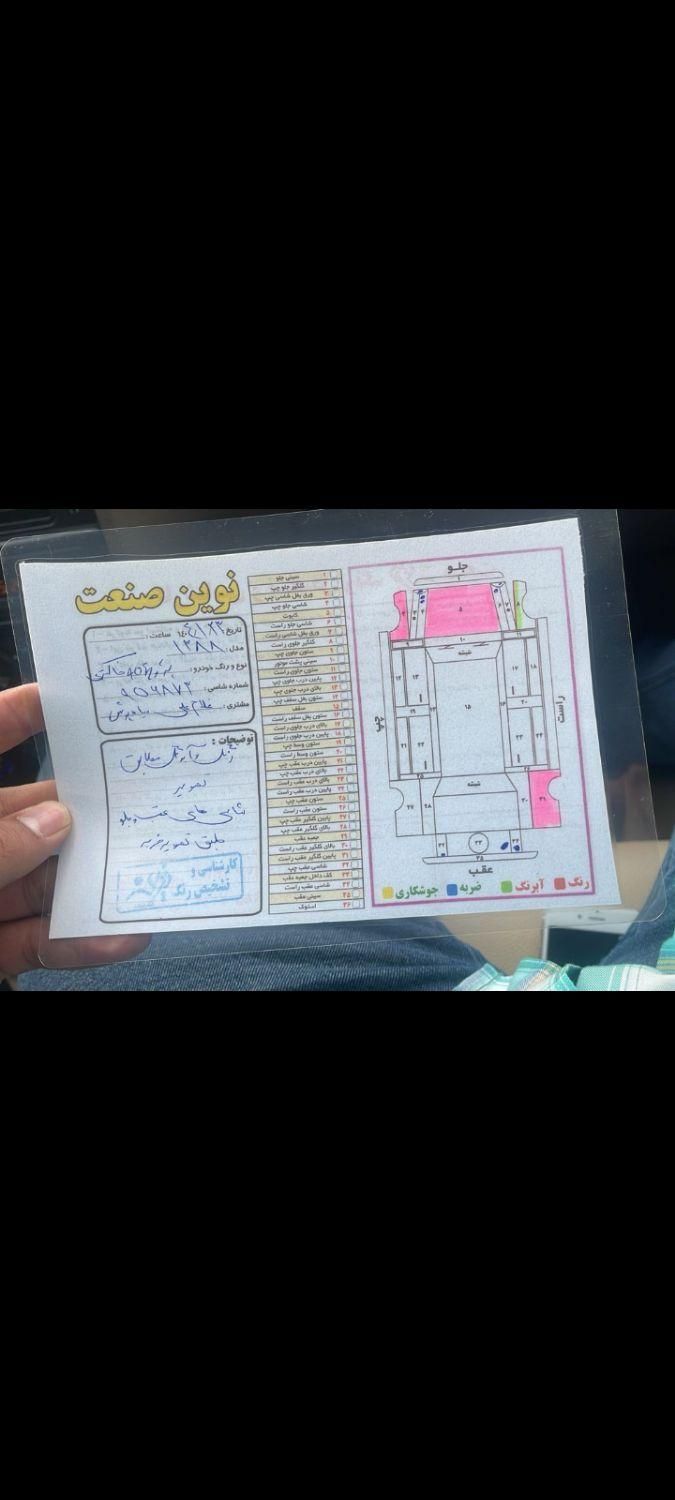 نوین صنعت
تاریخ :
ساعت :
مدل : ۱۳۸۸
نوع و رنگ خودرو :
شماره شاسی :
مشتری :
توضیحات :
رنگ و آبرنگ مطابق
تصویر
شاسی های عقب و جلو
طبق تصویر ضربه
کارشناسی و
تشخیص رنگ
۱ سینی جلو
۲ گلگیر جلو چپ
۳ ورق بغل شاسی چپ
۴ شاسی جلو چپ
۵ کاپوت
۶ شاسی جلو راست
۷ ورق بغل شاسی راست
۸ گلگیر جلوی راست
۹ ستون جلوی چپ
۱۰ سینی پشت موتور
۱۱ ستون جلوی راست
۱۲ پایین درب جلوی چپ
۱۳ بالای درب جلوی چپ
۱۴ ستون بغل سقف چپ
۱۵ سقف
۱۶ ستون بغل سقف راست
۱۷ بالای درب جلوی راست
۱۸ پایین درب جلوی راست
۱۹ ستون وسط چپ
۲۰ ستون وسط راست
۲۱ پایین درب عقب چپ
۲۲ بالای درب عقب چپ
۲۳ بالای درب عقب راست
۲۴ پایین درب عقب راست
۲۵ ستون عقب چپ
۲۶ ستون عقب راست
۲۷ پایین گلگیر عقب چپ
۲۸ بالای گلگیر عقب چپ
۲۹ جعبه عقب
۳۰ بالای گلگیر عقب راست
۳۱ پایین گلگیر عقب راست
۳۲ شاسی عقب چپ
۳۳ کف داخل جعبه عقب
۳۴ شاسی عقب راست
۳۵ سینی عقب
۳۶ استوک
جلو
شیشه
چپ
راست
شیشه
عقب
رنگ
آبرنگ
ضربه
جوشکاری